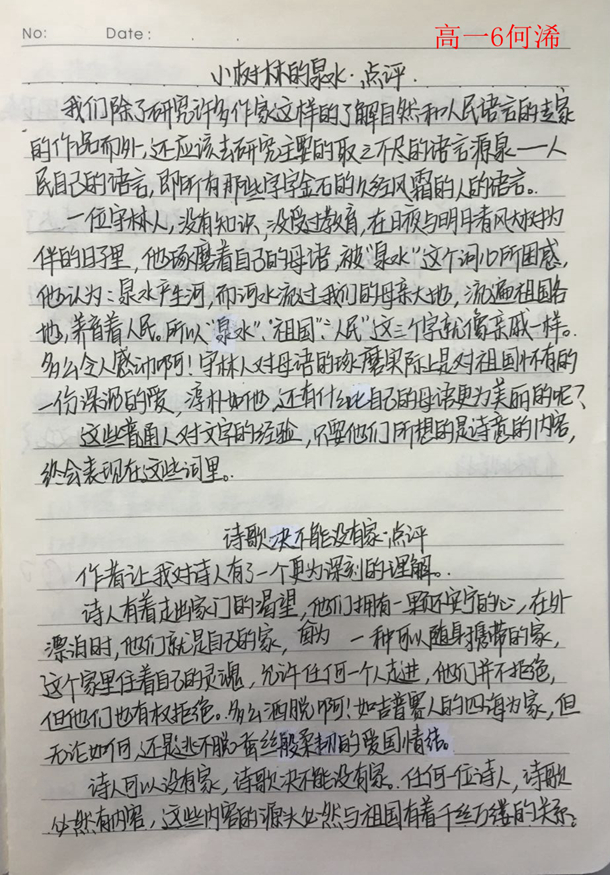 高一6何浠
No:
Date:
小树林的泉水·点评
我们除了研究许多作家这样的了解自然和人民语言的专家
的作品而外，还应该去研究主要的取之不尽的语言源泉——人
民自己的语言，即所有那些字字金石的久经风霜的人的语言。
一位守林人，没有知识，没受过教育，在日夜与明月清风大树为
伴的日子里，他琢磨着自己的母语，被“泉水”这个词儿所困惑，
他认为：泉水产生河，而河水流过我们的母亲大地，流遍祖国各
地，养育着人民。所以“泉水”、“祖国”、“人民”这三个字就像亲戚一样。
多么令人感动啊！守林人对母语的琢磨实际上是对祖国怀有的
一份深沉的爱，淳朴如他，还有什么比自己的母语更为美丽的呢？
这些普通人对文字的经验，只要他们所想的是诗意的内容，
终会表现在这些词里。
诗歌决不能没有家·点评
作者让我对诗人有了一个更为深刻的理解。
诗人有着走出家门的渴望，他们拥有一颗不安宁的心，在外
漂泊时，他们就是自己的家，自为 一种可以随身携带的家，
这个家里住着自己的灵魂，允许任何一个人走进，他们并不拒绝，
但他们也有权拒绝。多么洒脱啊！如吉普赛人的四海为家，但
无论如何，还是逃不脱蚕丝般柔韧的爱国情结。
诗人可以没有家，诗歌决不能没有家。任何一位诗人，诗歌
必然有内容，这些内容的源头必然与祖国有着千丝万缕的关系。